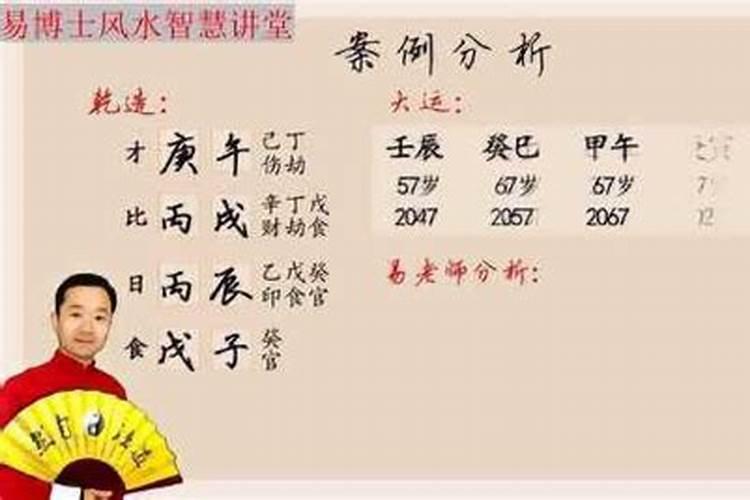 易博士风水智慧讲堂
案例分析
乾造：
才 庚 午 己丁
伤劫
比 丙 戌 辛丁戊
财劫食
日 丙 辰 乙戊癸
印食官
食 戊 子 癸
官
大运：
壬辰 癸巳 甲午
57岁 67岁 67岁
2047 2057 2067
易老师分析：